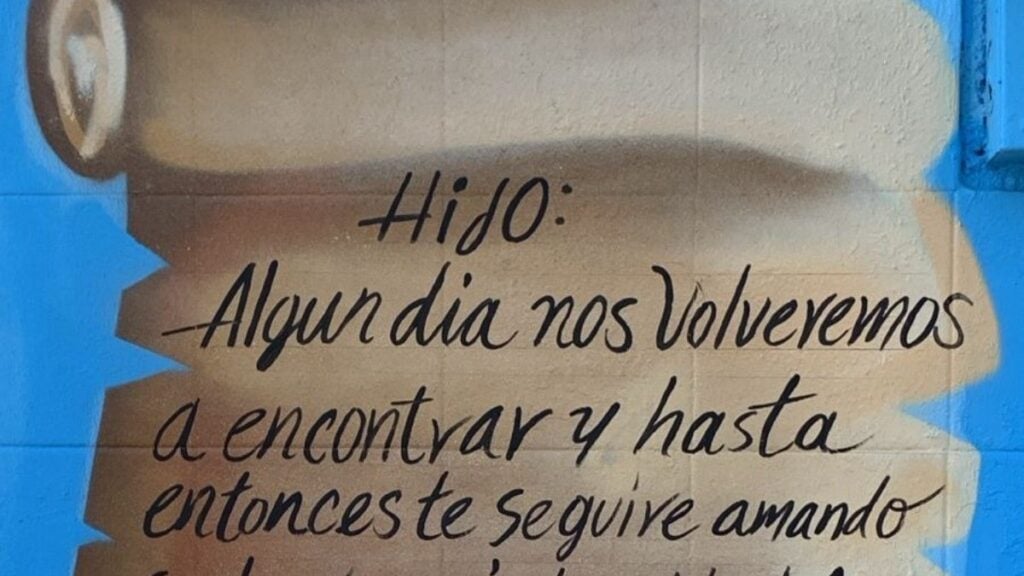 Hijo:
Algun dia nos Volveremos
a encontrar y hasta
entonces te seguire amando